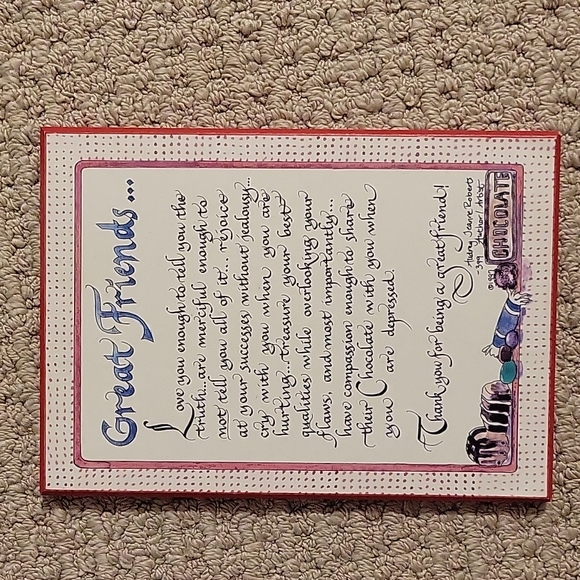 Great Friends...
Love you enough to tell you the
truth...are merciful enough to
not tell you all of it... rejoice
at your successes without jealousy...
cry with you when you are
hurting...treasure your best
qualities while overlooking your
flaws, and most importantly...
have compassion enough to share
their Chocolate with you when
you are depressed.
Thank you for being a great friend!
Author/Artist
CHOCOLATE